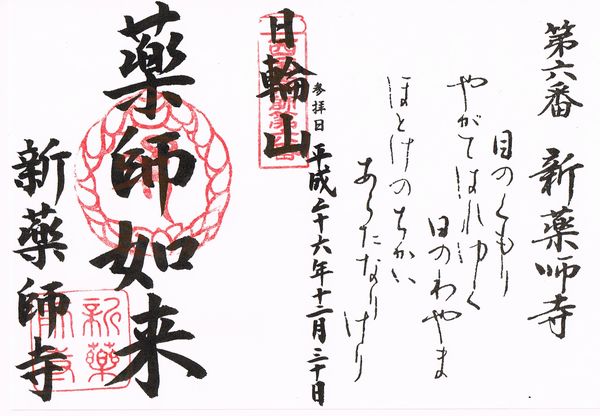 第六番 新薬師寺
目のくもり
やがてはれゆく
日のわやま
ほとけのちかい
あらたなりけり
参拝日 平成二十六年十二月三十日
日輪山
薬師如来
新薬師寺
新薬師寺